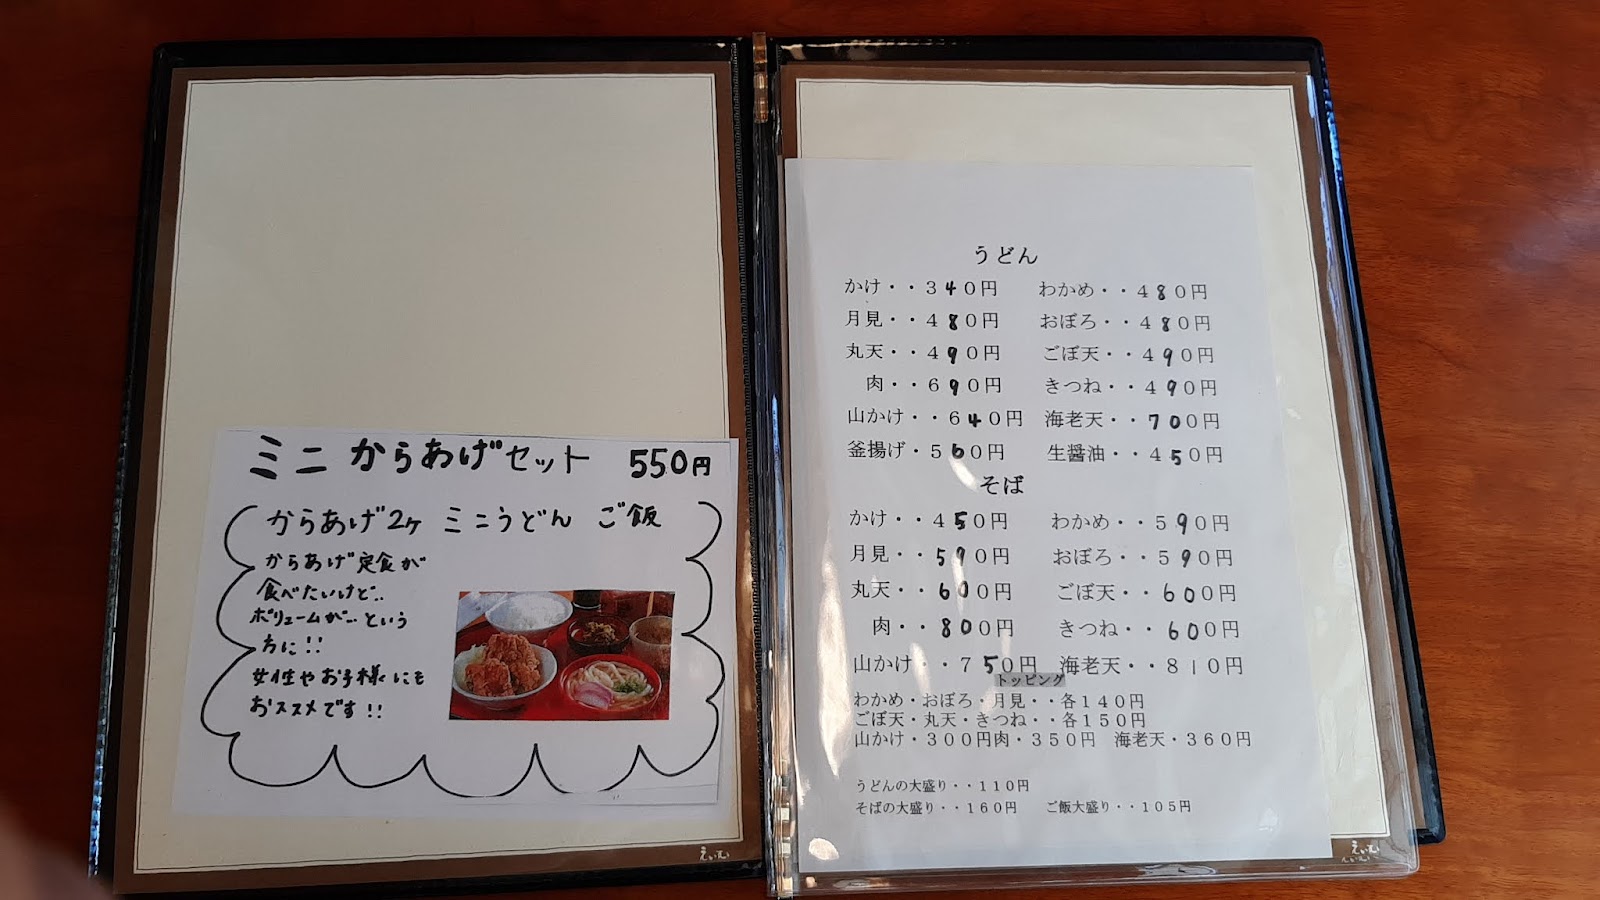 ミニ からあげセット 550円
からあげ2ヶ ミニうどん ご飯
からあげ定食が
食べたいけど..
ボリュームが…という
方に!!
女性やお子様にも
おススメです!!
うどん
かけ・・340円 わかめ・・480円
月見・・480円 おぼろ・・480円
丸天・・490円 ごぼ天・・490円
肉・・690円 きつね・・490円
山かけ・・640円 海老天・・700円
釜揚げ・560円 生醤油・・450円
そば
かけ・・450円 わかめ・・590円
月見・・590円 おぼろ・・590円
丸天・・600円 ごぼ天・・600円
肉・・800円 きつね・・600円
山かけ・・750円 海老天・・810円
トッピング
わかめ・おぼろ・月見・・各140円
ごぼ天・丸天・きつね・・各150円
山かけ・300円肉・350円 海老天・360円
うどんの大盛り・・110円
そばの大盛り・・160円 ご飯大盛り・・105円
えいむ
えいむ